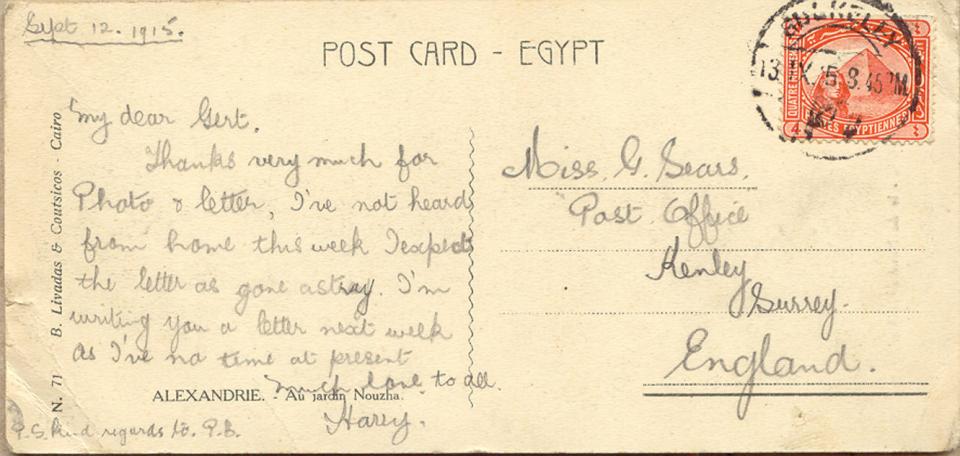 Sept 12. 1915.
POST CARD - EGYPT
My dear Gert.
Thanks very much for
Photo & letter, I've not heard
from home this week I expect
the letter as gone astray. I'm
writing you a letter next week
as I've no time at present
much love to all.
Harry.
P.S. Kind regards to. P.B.
ALEXANDRIE. - Au jardin Nouzha.
N. 71 B. Livadas & Coutsicos - Cairo
Miss. G. Sears.
Post Office
Kenley
Surrey.
England.
BULKELEY
13 IX 15 8.45 PM
QUATRE
POSTES EGYPTIENNES
4